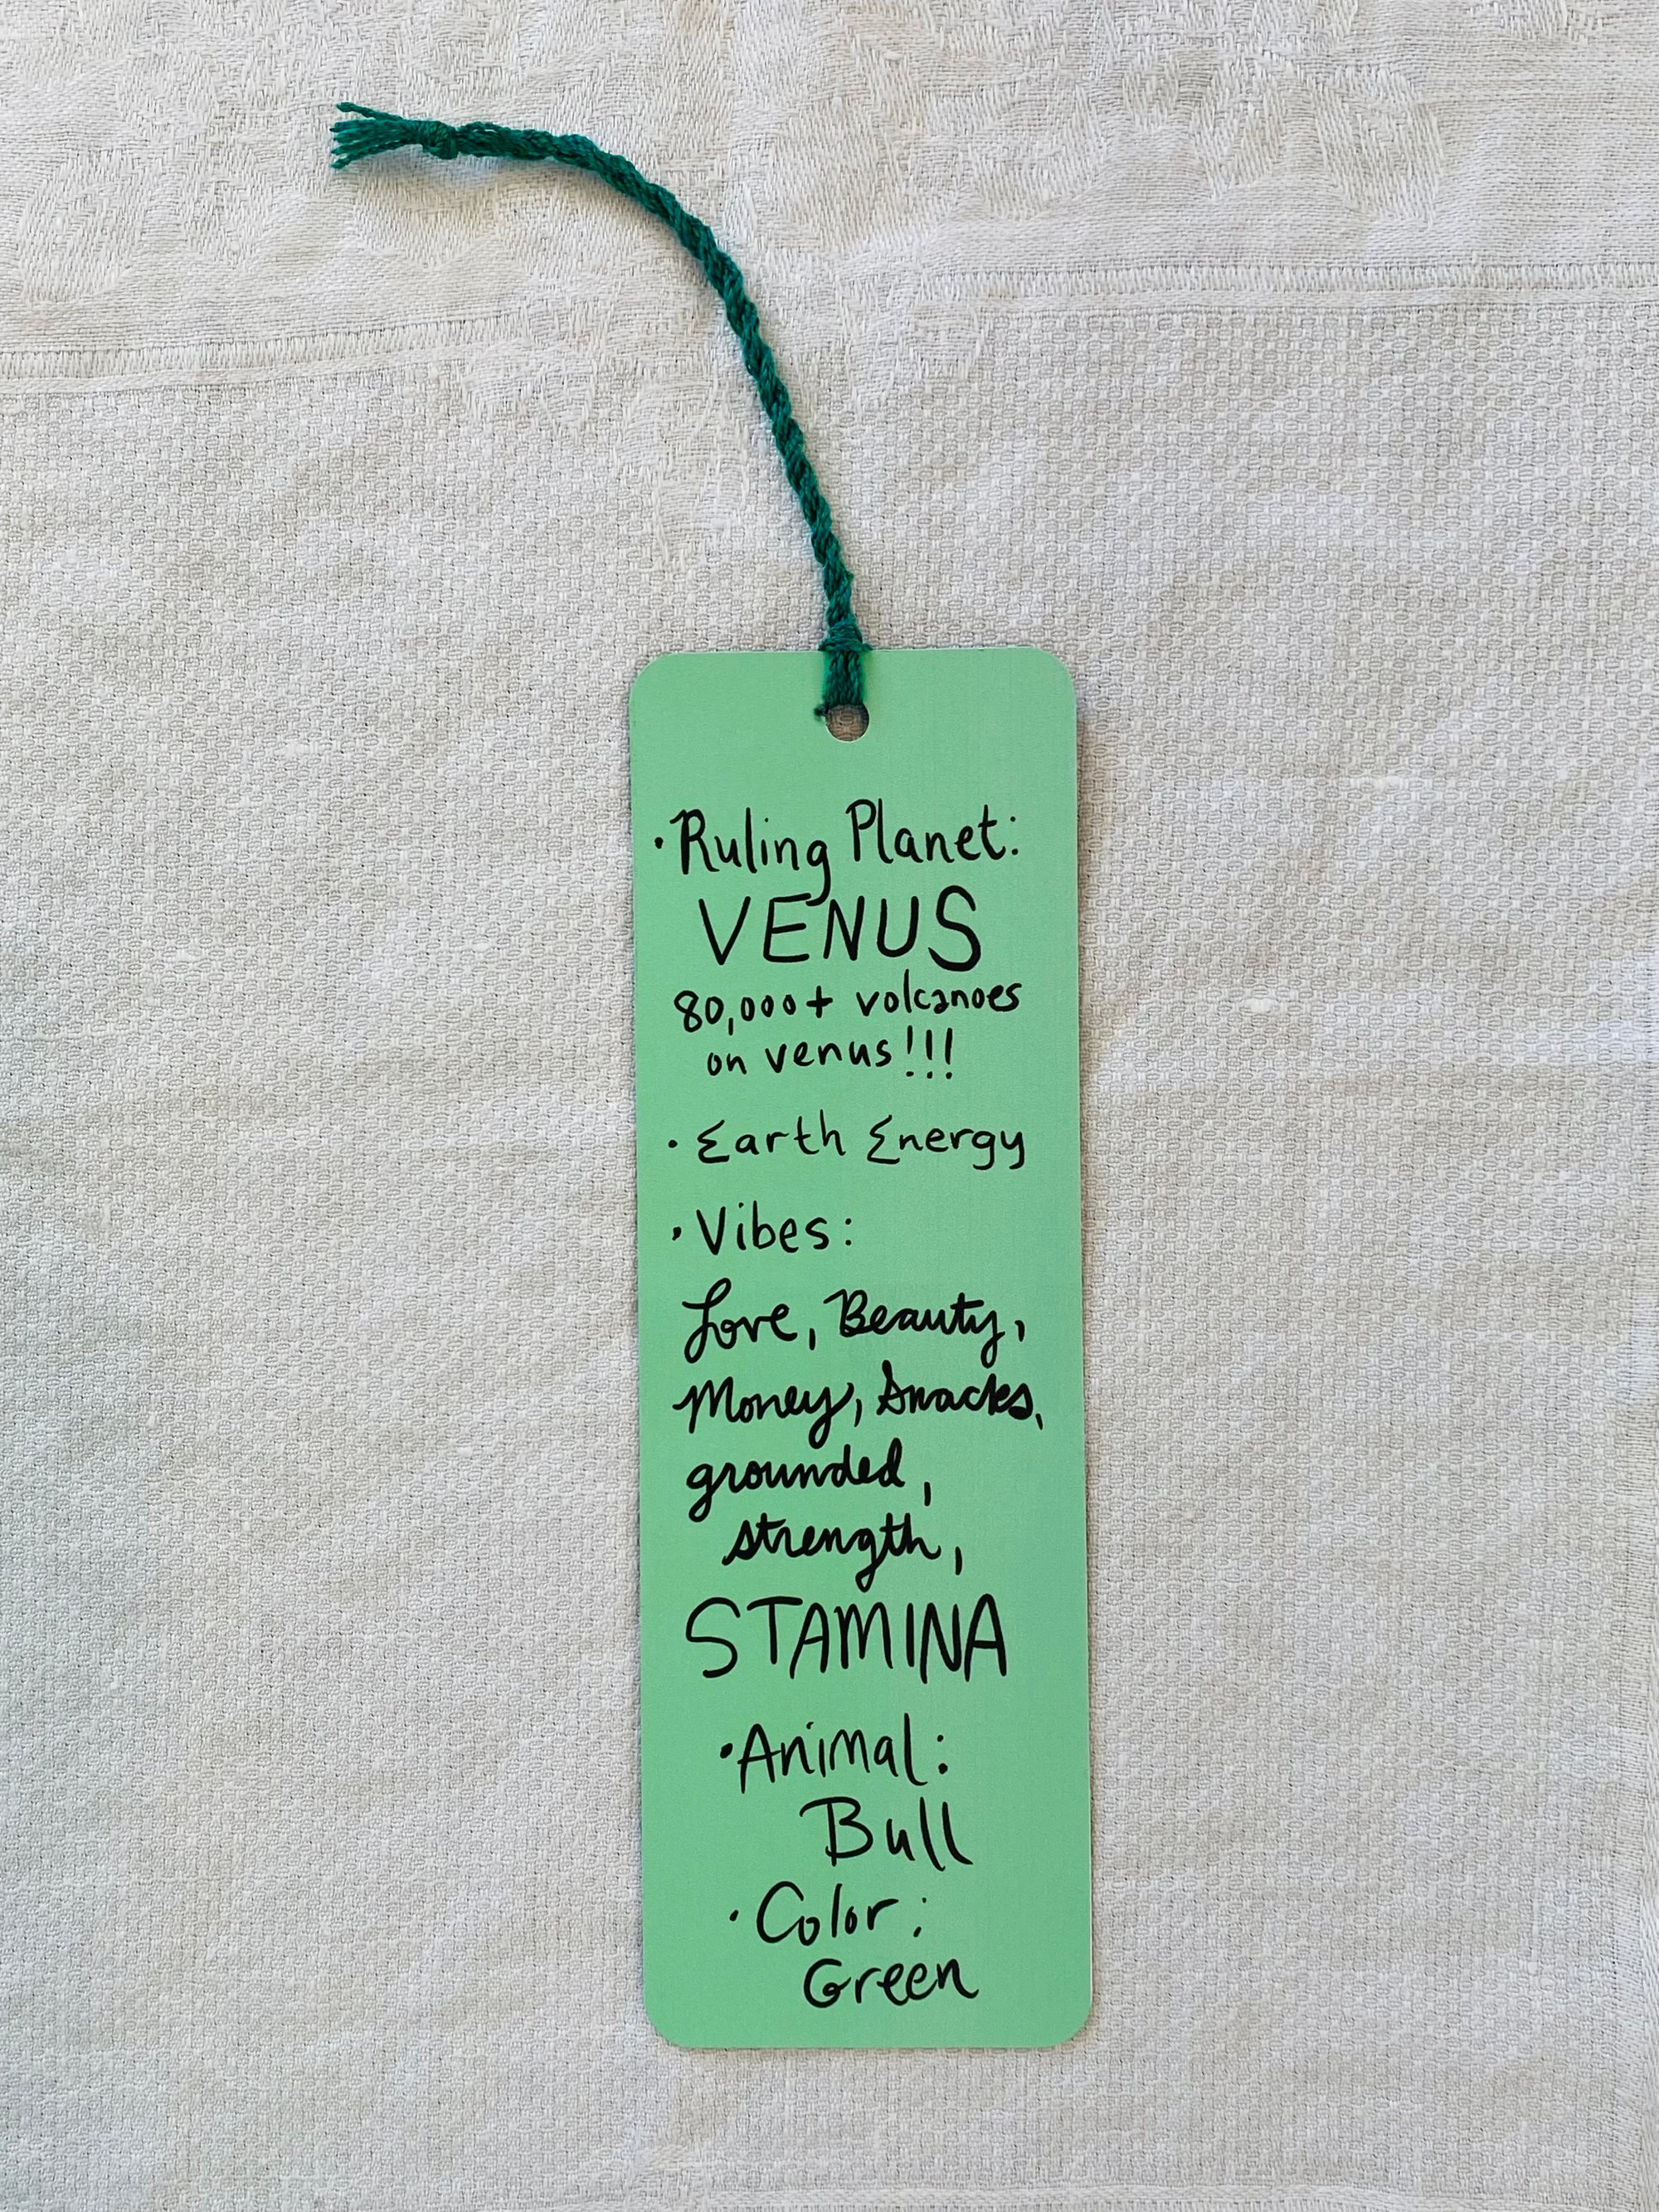 · Ruling Planet:
VENUS
80,000+ volcanoes
on venus!!!
· Earth Energy
· Vibes:
Love, Beauty,
Money, Snacks,
grounded,
strength,
STAMINA
· Animal:
Bull
· Color:
Green